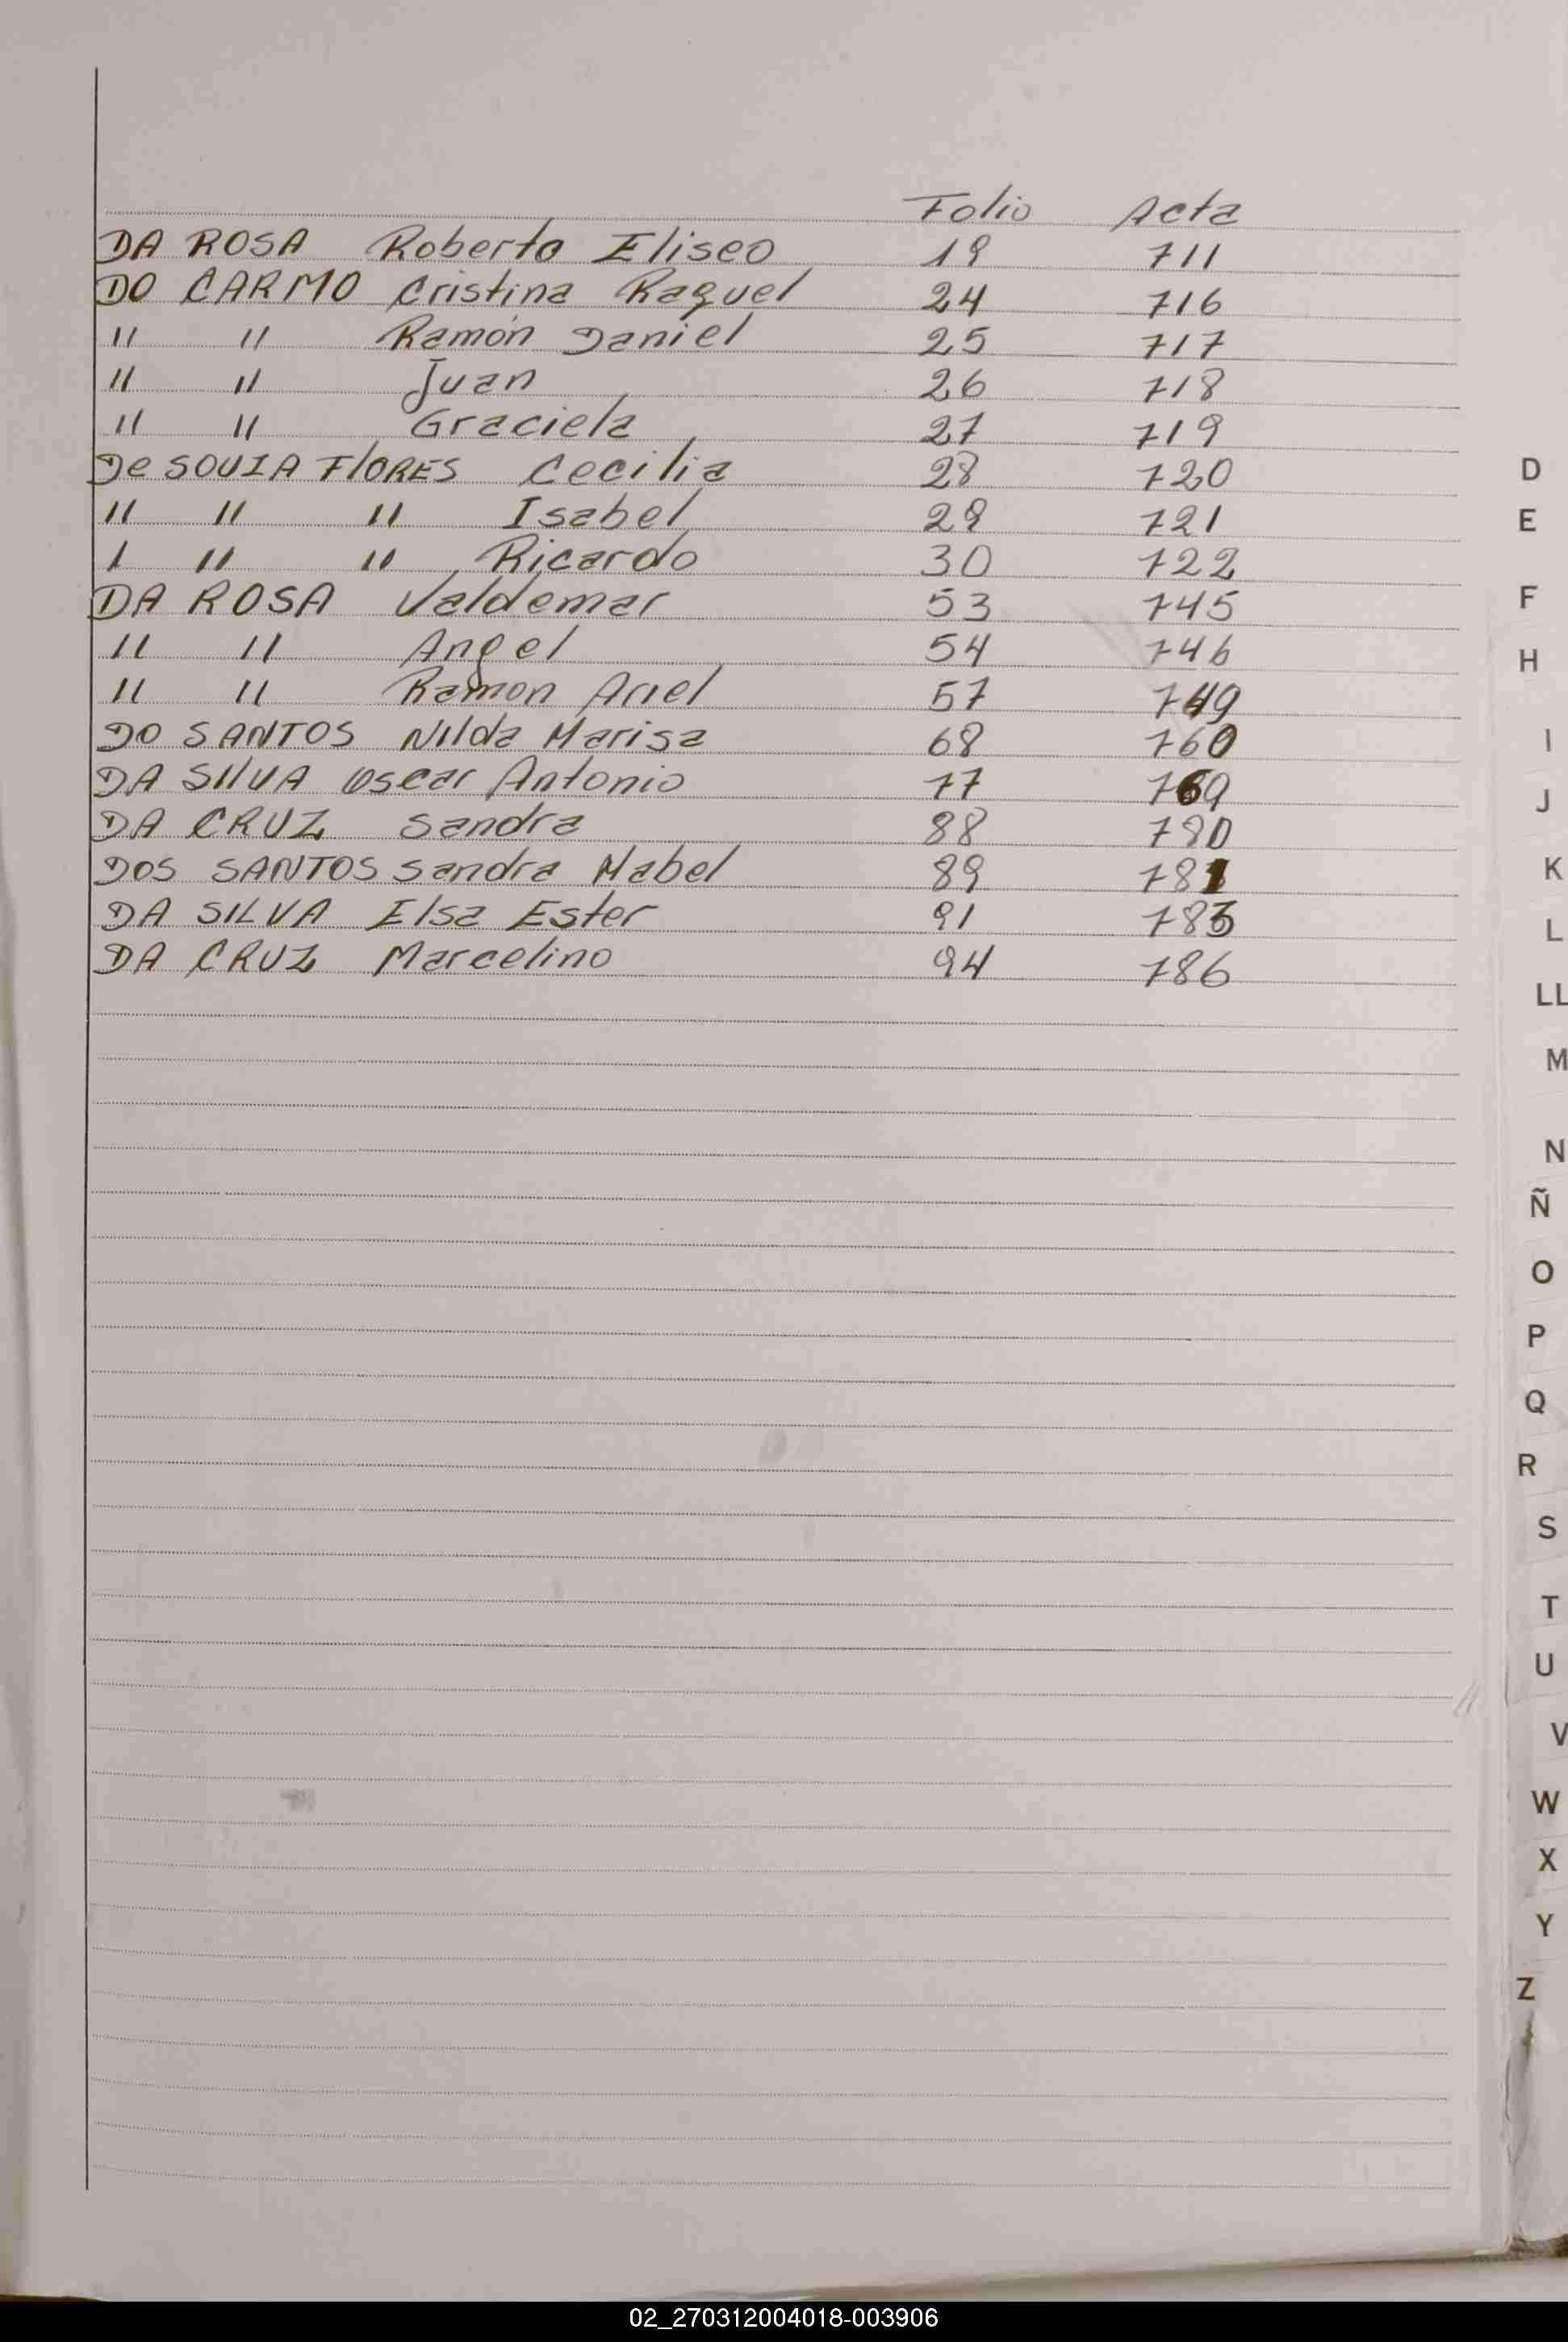 Folio Acta
DA ROSA Roberto Eliseo 19 711
DO CARMO Cristina Raquel 24 716
" " Ramón Daniel 25 717
" " Juan 26 718
" " Graciela 27 719
De SOUZA FlORES Cecilia 28 720
" " " Isabel 29 721
" " " Ricardo 30 722
DA ROSA Valdemar 53 745
" " Angel 54 746
" " Ramon Ariel 57 749
DO SANTOS Nilda Marisa 68 760
DA SIlVA Oscar Antonio 77 769
DA CRUZ Sandra 88 780
DOS SANTOS Sandra Mabel 89 781
DA SILVA Elsa Ester 91 783
DA CRUZ Marcelino 94 786
D
E
F
H
I
J
K
L
LL
M
N
Ñ
O
P
Q
R
S
T
U
V
W
X
Y
Z
02_270312004018-003906